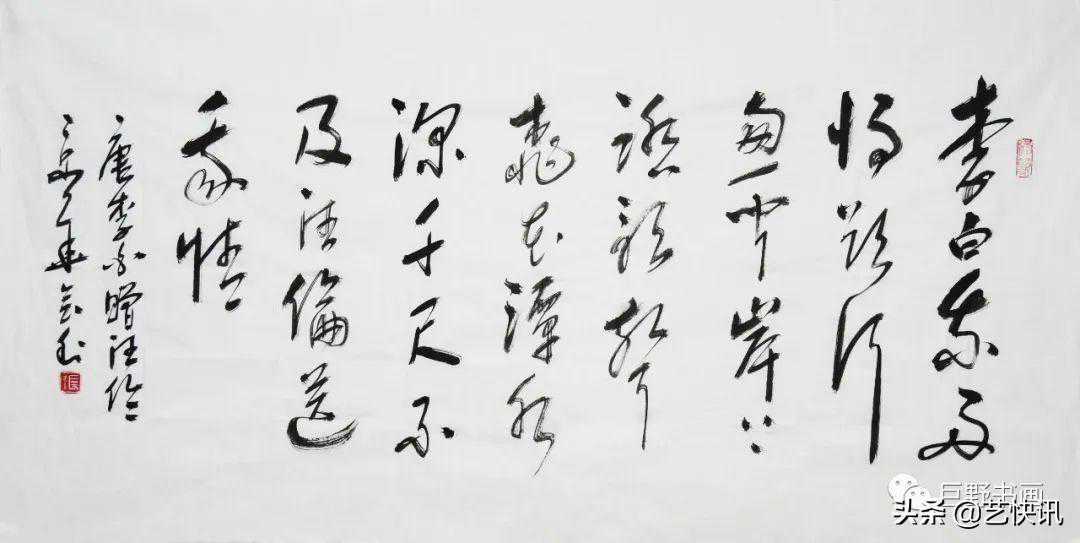 李白乘舟
將欲行
忽聞岸上
踏歌聲
桃花潭水
深千尺不
及汪倫送
我情
唐李白贈汪倫
巨野书画
头条 @艺快讯